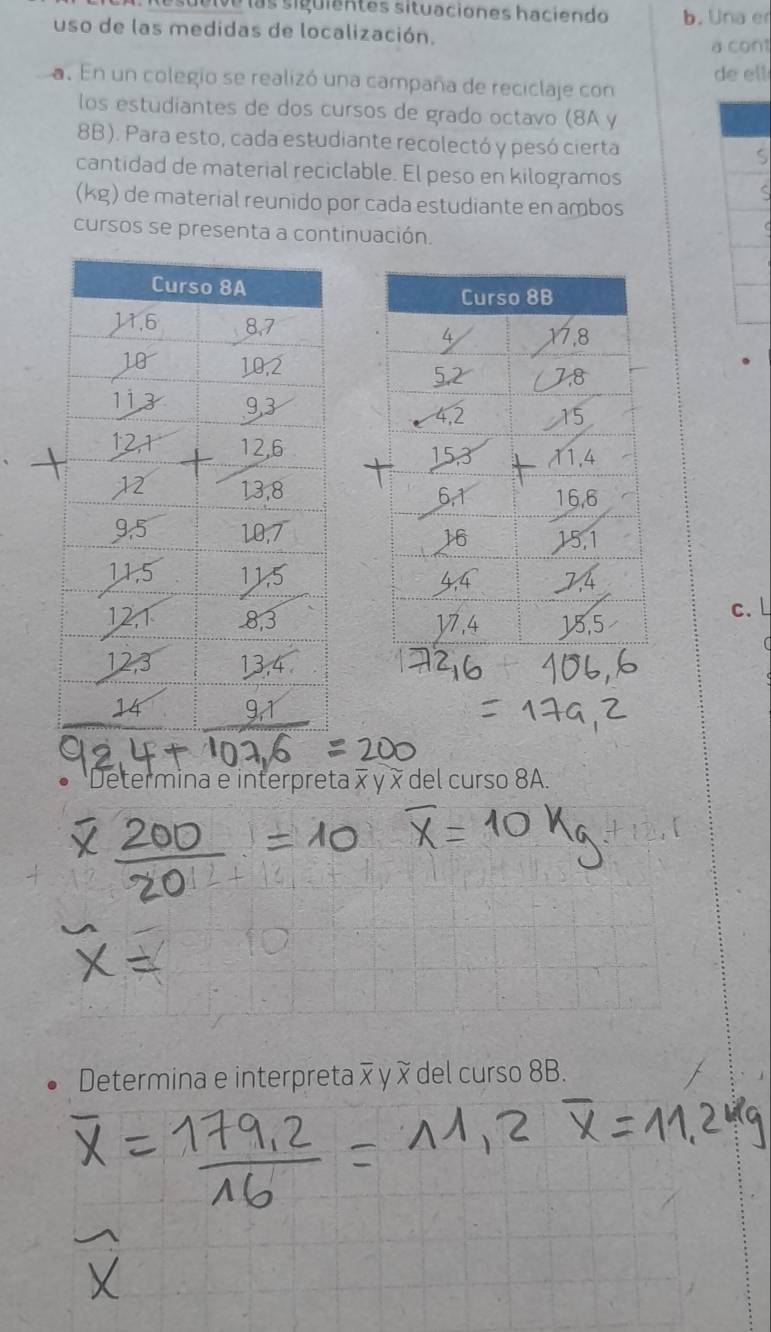 las siguientes situaciones haciendo
uso de las medidas de localización.
a. En un colegio se realizó una campaña de reciclaje con
los estudiantes de dos cursos de grado octavo (8A y
8B). Para esto, cada estudiante recolectó y pesó cierta
cantidad de material reciclable. El peso en kilogramos
(kg) de material reunido por cada estudiante en ambos
cursos se presenta a continuación.
Curso 8A
11,6 8,7
10 10,2
11,3 9,3
12,1 12,6
+ +
12 13,8
9,5 10,7
11,5 11,5
12,1 8,3
12,3 13,4
14 9,1
92,4 + 107,6 = 200
Curso 8B
4 17,8
5,2 7,8
4,2 15
15,3 11,4
+ +
6,1 16,6
16 15,1
4,4 7,4
17,4 15,5
172,6 + 106,6
= 179,2
• Determina e interpreta x̅ y x̃ del curso 8A.
x̅ 200/20 = 10 x̅ = 10 Kg
x̃ =
• Determina e interpreta x̅ y x̃ del curso 8B.
x̅ = 179,2/16 = 11,2 x̅ = 11,2 Kg
x̃
b. Una
a
de
c.